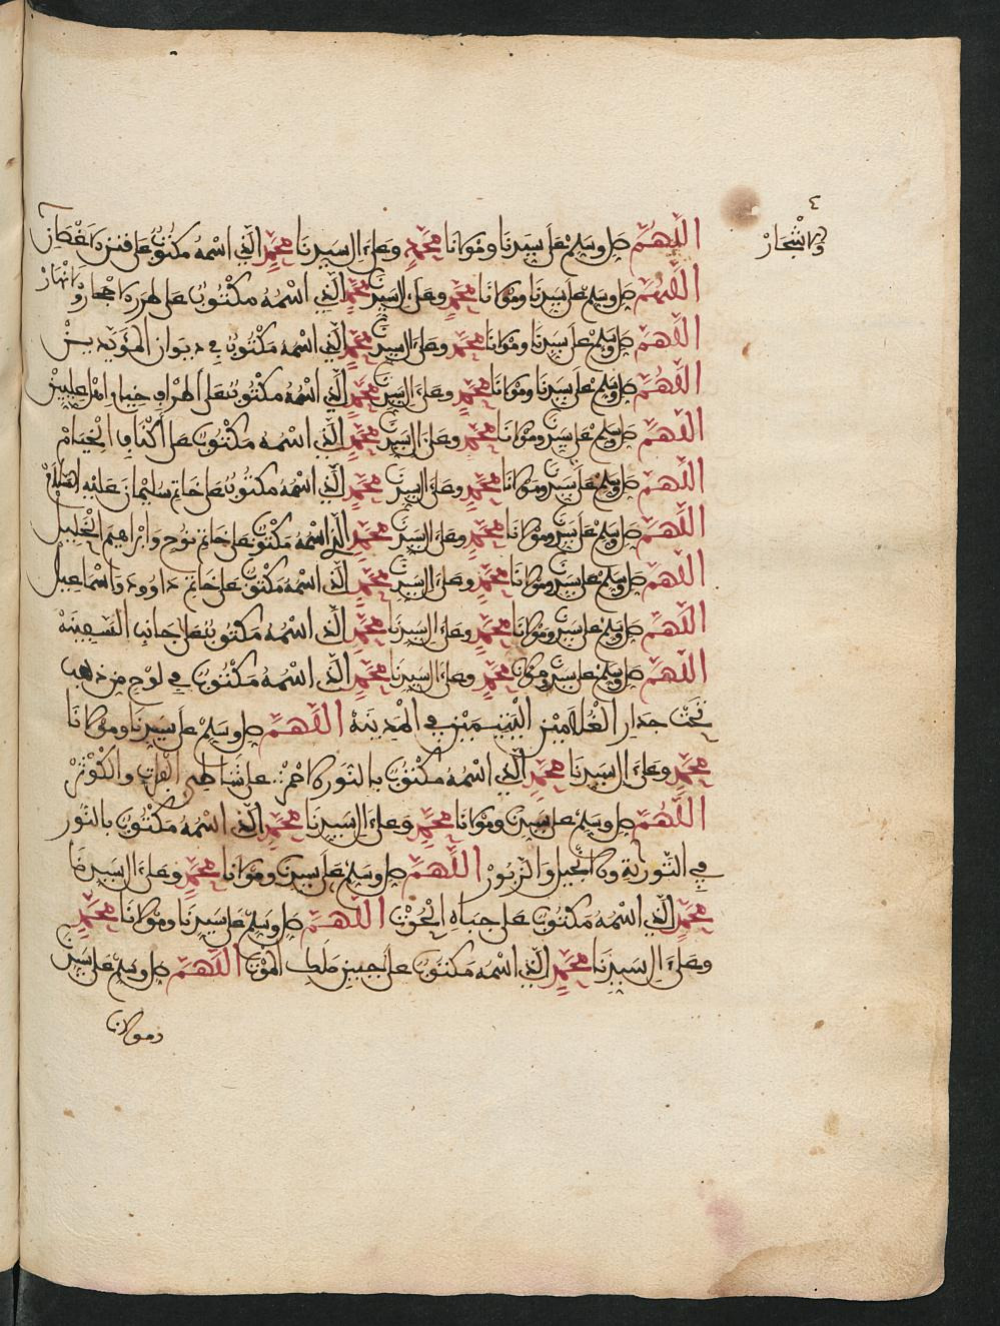 ٤
والاشجار
اللهم صل وسلم على سيدنا ومولانا محمد وعلى ءال سيدنا محمد الذي اسمه مكتوب على فنن الاغصان
اللهم صل وسلم على سيدنا ومولانا محمد وعلى ءال سيدنا محمد الذي اسمه مكتوب على والانهار
اللهم صل وسلم على سيدنا ومولانا محمد وعلى ءال سيدنا محمد الذي اسمه مكتوب في ديوان المؤيدين
اللهم صل وسلم على سيدنا ومولانا محمد وعلى ءال سيدنا محمد الذي اسمه مكتوب على اطراف خيام اهل عليين
اللهم صل وسلم على سيدنا ومولانا محمد وعلى ءال سيدنا محمد الذي اسمه مكتوب على أكناف الخيام
اللهم صل وسلم على سيدنا ومولانا محمد وعلى ءال سيدنا محمد الذي اسمه مكتوب على خاتم سليمان عليه السلام
اللهم صل وسلم على سيدنا ومولانا محمد وعلى ءال سيدنا محمد الذي اسمه مكتوب على خاتم نوح وابراهيم الخليل
اللهم صل وسلم على سيدنا ومولانا محمد وعلى ءال سيدنا محمد الذي اسمه مكتوب على خاتم داوود واسماعيل
اللهم صل وسلم على سيدنا ومولانا محمد وعلى ءال سيدنا محمد الذي اسمه مكتوب على جانب السفينة
اللهم صل وسلم على سيدنا ومولانا محمد وعلى ءال سيدنا محمد الذي اسمه مكتوب في لوح من ذهب
تحت جدار الغلامين اليتيمين في المدينة اللهم صل وسلم على سيدنا ومولانا
محمد وعلى ءال سيدنا محمد الذي اسمه مكتوب بالنور الاحمر على شاطئ الفرات والكوثر
اللهم صل وسلم على سيدنا ومولانا محمد وعلى ءال سيدنا محمد الذي اسمه مكتوب بالنور
في التورية والانجيل والزبور اللهم صل وسلم على سيدنا ومولانا محمد وعلى ءال سيدنا
محمد الذي اسمه مكتوب على جباه الحوت اللهم صل وسلم على سيدنا ومولانا محمد
وعلى ءال سيدنا محمد الذي اسمه مكتوب على جبين ملك الموت اللهم صل وسلم على سيدنا
ومولانا